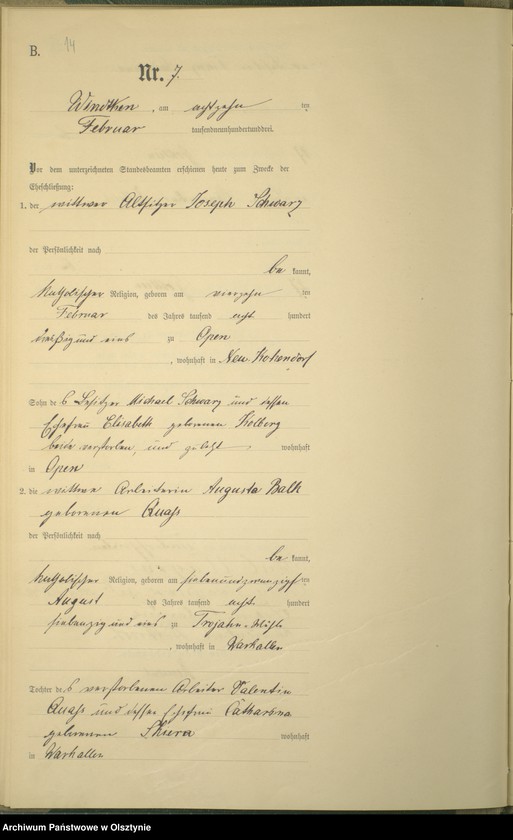 B.
14
Nr. 7.
Windtken, am achtzehn ten
Februar tausendneunhundertunddrei.
Vor dem unterzeichneten Standesbeamten erschienen heute zum Zwecke der
Eheschließung:
1. der wittwer Altsitzer Joseph Schwarz
der Persönlichkeit nach
be kannt,
katholischer Religion, geboren am vierzehn ten
Februar des Jahres tausend acht hundert
dreißig und eins zu Open
, wohnhaft in Neu Kokendorf
Sohn des Besitzer Michael Schwarz und dessen
Ehefrau Elisabeth geborenen Kolberg
beide verstorben, und zuletzt wohnhaft
in Open
2. die wittwe Arbeiterin Augusta Balk
geborenen
der Persönlichkeit nach
be kannt,
katholischer Religion, geboren am siebenundzwanzigsten
August des Jahres tausend acht hundert
siebenzig und eins zu Trojahn-Mühle
, wohnhaft in Warkallen
Tochter des verstorbenen Arbeiter Valentin
und dessen Ehefrau Catharina
geborenen wohnhaft
in Warkallen
Archiwum Państwowe w Olsztynie